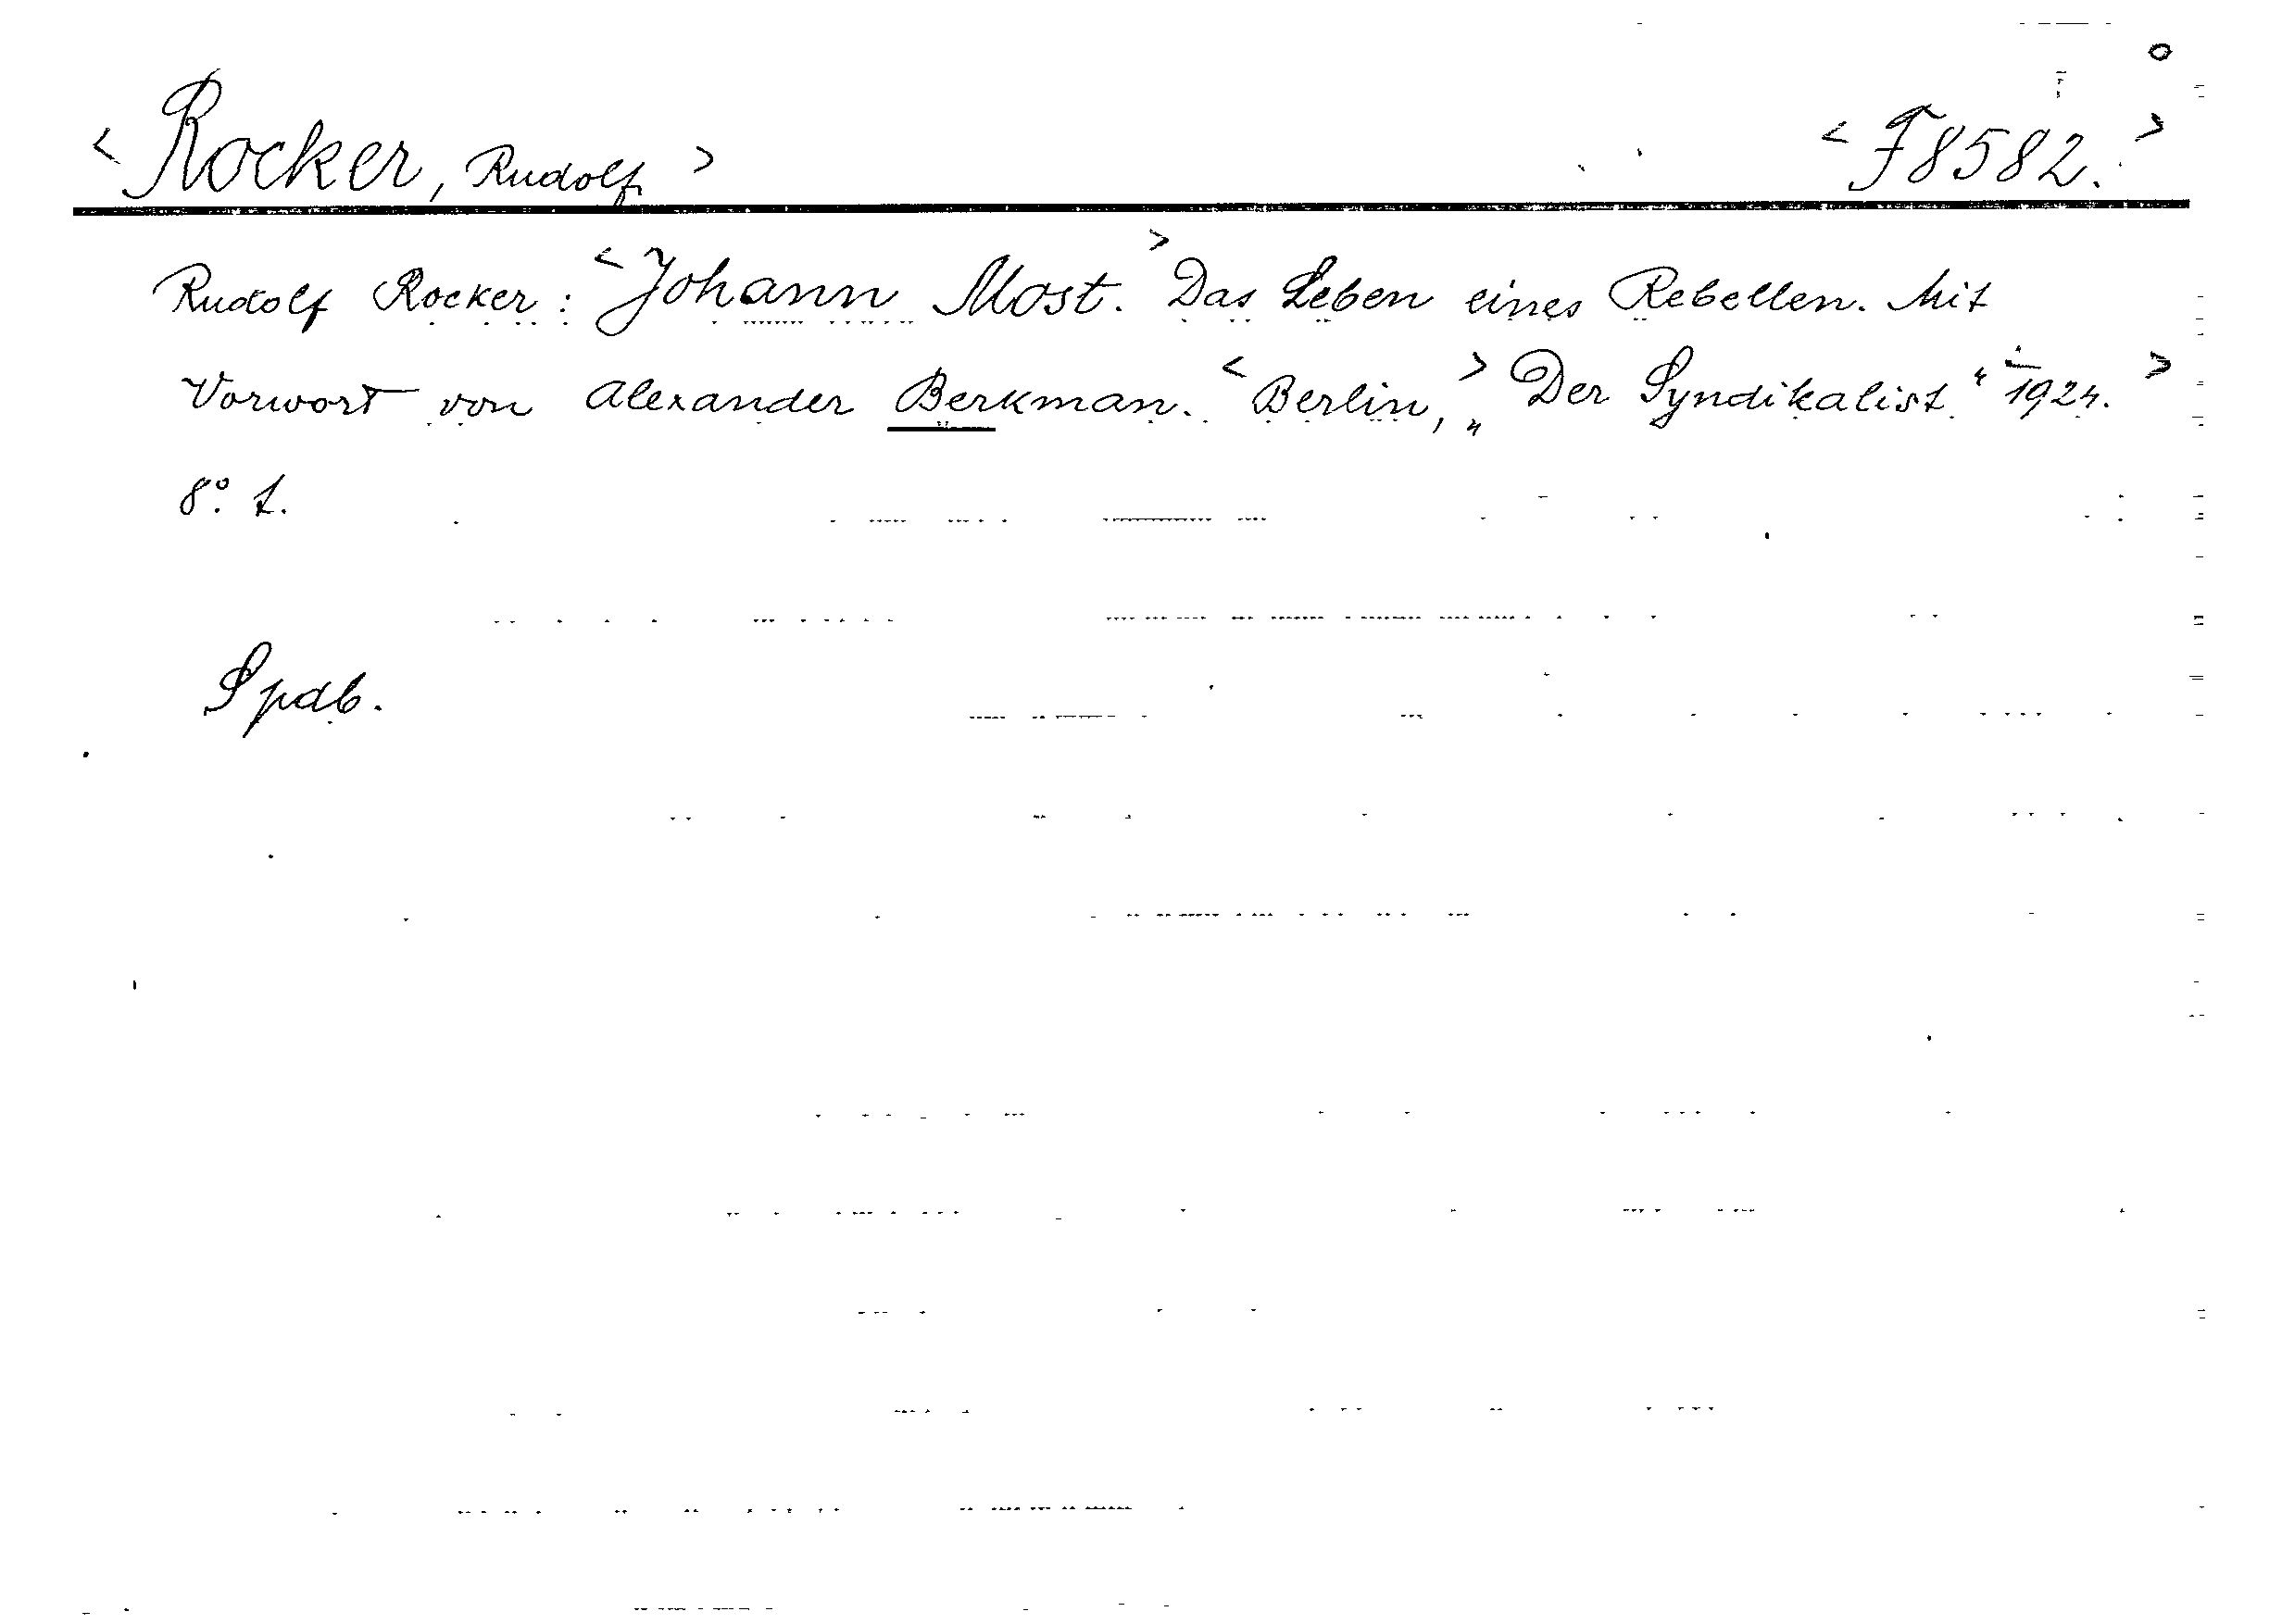 < Rocker, Rudolf > < F 8582. >
Rudolf Rocker: < Johann Most. > Das Leben eines Rebellen. Mit
Vorwort von Alexander Berkman. < Berlin, > „Der Syndikalist“ 1924. >
8°. t.
Spdb.